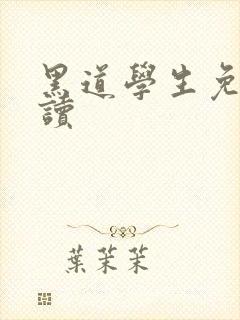 黑道學生免
讀
葉茉茉